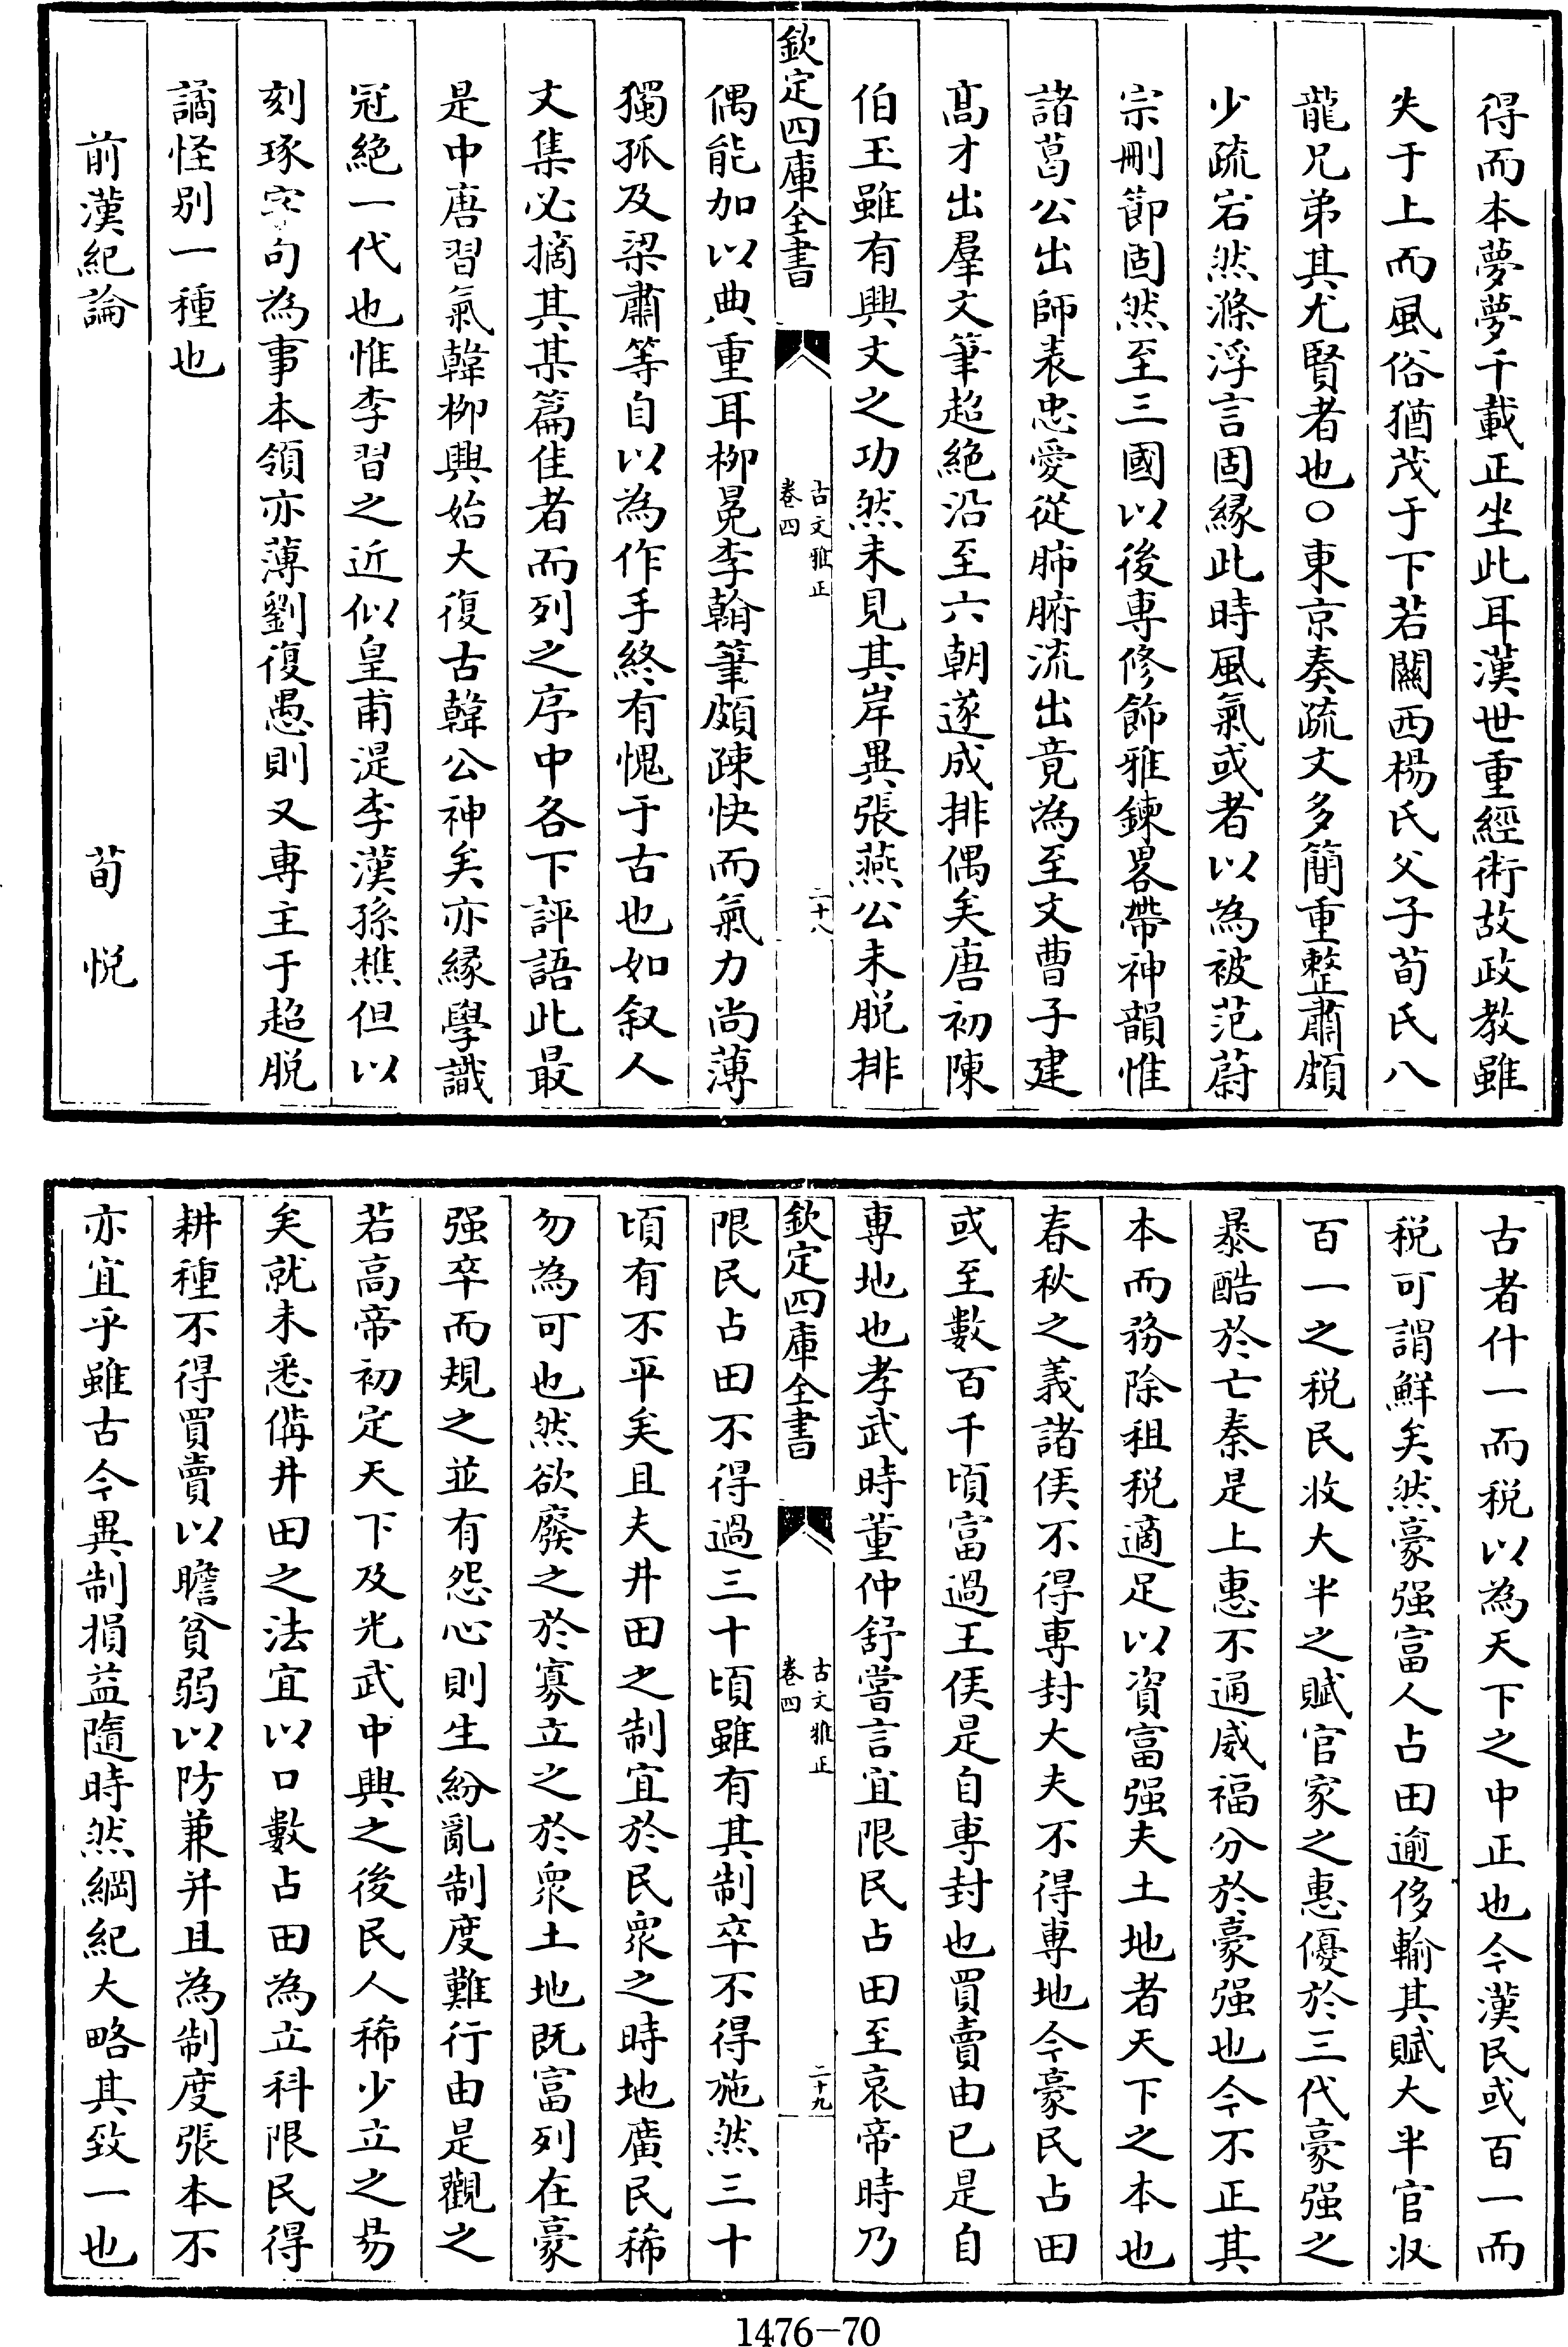 得而本夢夢千載正坐此耳漢世重經術故政教雖
失于上而風俗猶茂于下若關西楊氏父子荀氏八
龍兄弟其尤賢者也○東京奏疏文多簡重整肅頗
少疏宕然滌浮言固緣此時風氣或者以為被范蔚
宗刪節固然至三國以後専修飾雅鍊畧帶神韻惟
諸葛公出師表忠愛從肺腑流出竟為至文曹子建
髙才出羣文筆超絶沿至六朝遂成排偶矣唐初陳
伯玉雖有興文之功然未見其岸異張燕公未脱排
欽定四庫全書
古文雅正
卷四
二十八
偶能加以典重耳栁冕李翰筆頗疎快而氣力尚薄
獨孤及梁肅等自以為作手終有愧于古也如叙人
文集必摘其某篇佳者而列之序中各下評語此最
是中唐習氣韓栁興始大復古韓公神矣亦緣學識
冠絶一代也惟李習之近似皇甫湜李漢孫樵但以
刻琢字句為事本領亦薄劉復愚則又専主于超脱
譎怪别一種也
前漢紀論
荀悦
古者什一而税以為天下之中正也今漢民或百一而
税可謂鮮矣然豪强富人占田逾侈輸其賦大半官収
百一之税民收大半之賦官家之惠優於三代豪强之
暴酷於亡秦是上惠不通威福分於豪强也今不正其
本而務除租税適足以資富强夫土地者天下之本也
春秋之義諸侯不得専封大夫不得専地今豪民占田
或至數百千頃富過王侯是自専封也買賣由已是自
専地也孝武時董仲舒嘗言宜限民占田至哀帝時乃
欽定四庫全書
古文雅正
卷四
二十九
限民占田不得過三十頃雖有其制卒不得施然三十
頃有不平矣且夫井田之制宜於民衆之時地廣民稀
勿為可也然欲廢之於寡立之於衆土地既富列在豪
强卒而規之並有怨心則生紛亂制度難行由是觀之
若高帝初定天下及光武中興之後民人稀少立之易
矣就未悉備井田之法宜以口數占田為立科限民得
耕種不得買賣以贍貧弱以防兼并且為制度張本不
亦宜乎雖古今異制損益隨時然綱紀大略其致一也
1476-70